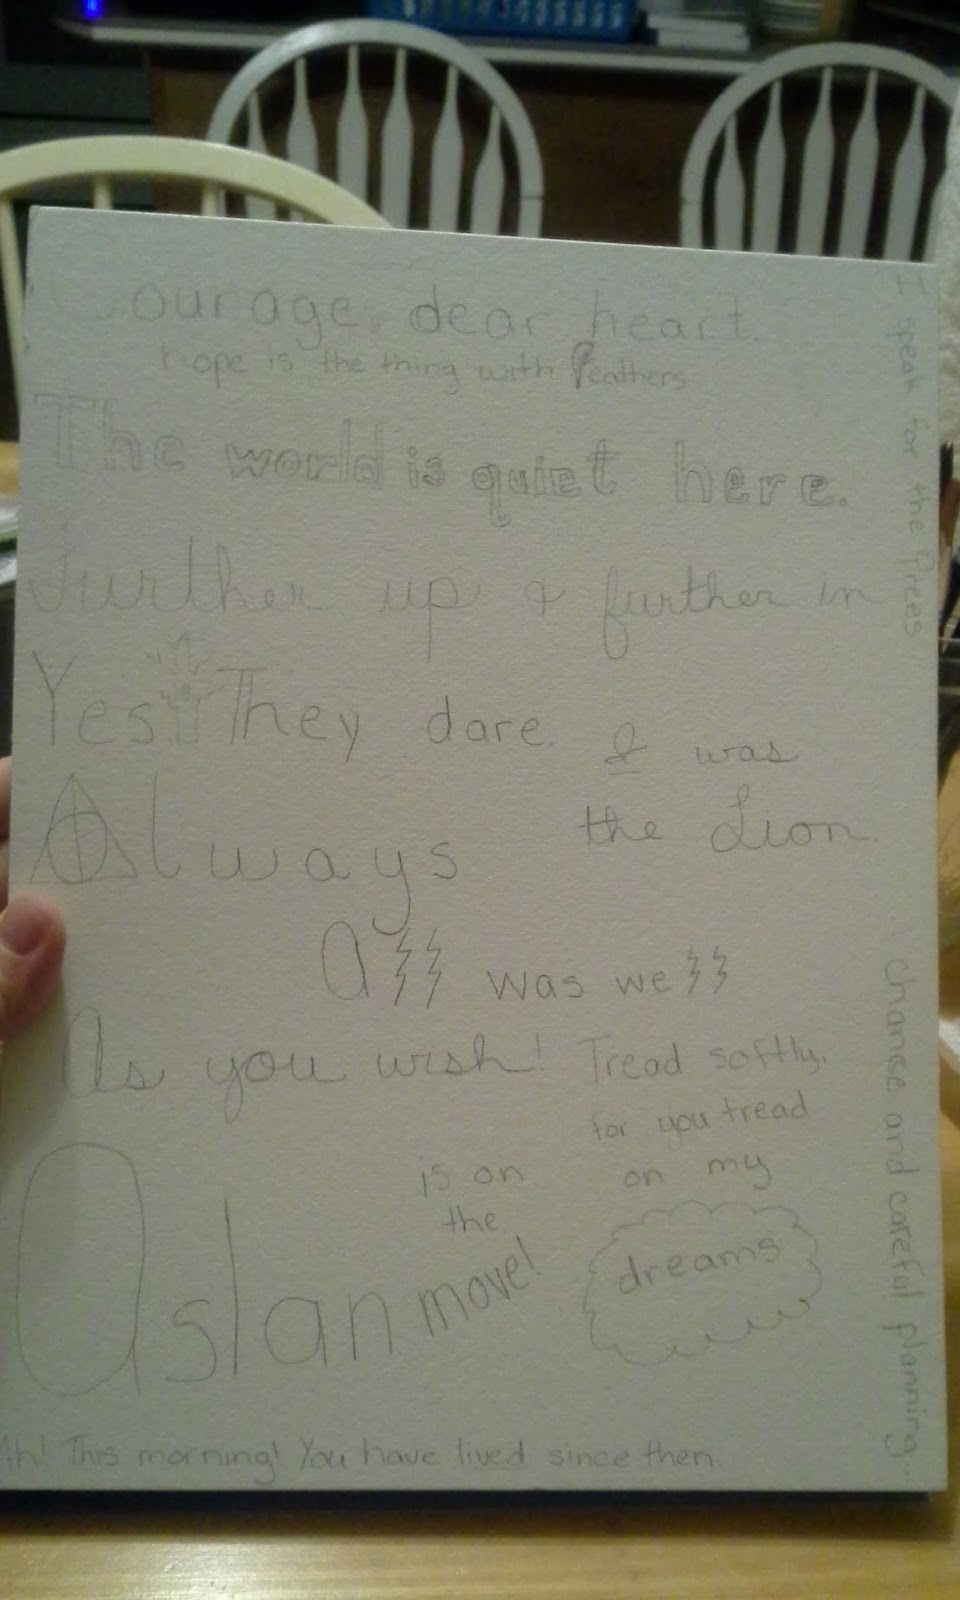 Courage, dear heart.
Hope is the thing with feathers
The world is quiet here.
further up & further in
Yes They dare.
I was
the Lion
Always
All was well
As you wish!
Tread softly,
for you tread
on my
dreams
Aslan
is on
the
move!
Ah! This morning! You have lived since then.
I speak for the trees
Chance and careful planning...